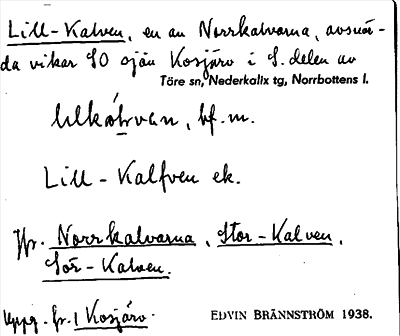 Lill-Kalven, en av Norrkalvarna, avsnör-
da vikar SO sjön Kosjärv i S. delen av
Töre sn, Nederkalix tg, Norrbottens l.
bf. m.
Lill-Kalfven ek.
Jfr. Norrkalvarna, Stor-Kalven,
Sör-Kalven.
Uppg. fr. Kosjärv.
EDVIN BRÄNNSTRÖM 1938.